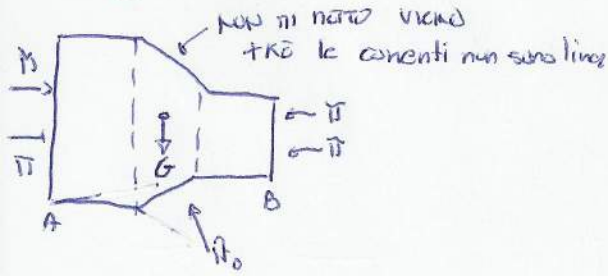 NON MI METTO VICINO
+Kè le correnti non sono linea
M
Π
Π
Π
G
A
B
Π₀